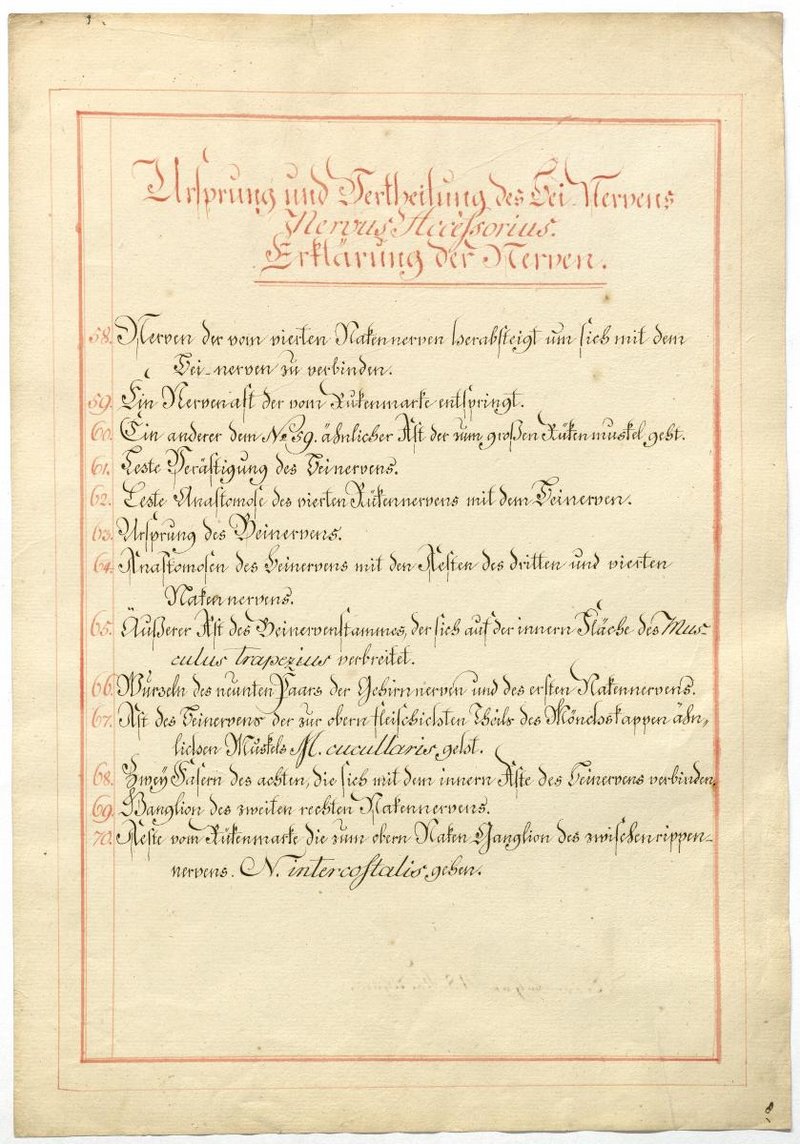 Ursprung und Vertheilung des Bei-Nervens
Nervus Accessorius.
Erklärung der Nerven.
58. Nerven der vom vierten Nakennerven herabsteigt um sich mit dem
Bei-nerven zu verbinden.
59. Ein Nervenast der vom Rukenmarke entspringt.
60. Ein anderer dem No. 59. ähnlicher Ast der zum großen Rükenmuskel geht.
61. Leste Verästigung des Beinervens.
62. Leste Anastomose des vierten Rükennervens mit dem Beinerven.
63. Ursprung des Beinervens.
64. Anastomosen des Beinervens mit den Aesten des dritten und vierten
Nakennervens.
65. Äußerer Ast des Beinervenstammes, der sich auf der innern Fläche des Mus-
culus trapezius verbreitet.
66. Wurzeln des neunten Paars der Gehirnnerven und des ersten Nakennervens.
67. Ast des Beinervens der zur obern fleischichsten Theils des Mönchskappen ähn-
lichen Muskels M. cucullaris, geht.
68. Zwey Fasern des achten, die sich mit dem innern Aste des Beinervens verbinden.
69. Ganglion des zweiten rechten Nakennervens.
70. Aeste vom Rükenmarke die zum obern Naken Ganglion des zwischenrippen-
nervens. N. intercostalis, gehen.
8